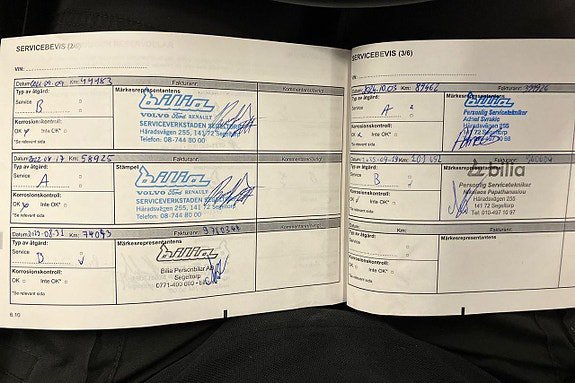 SERVICEBEVIS (2/6)
VIN:
Datum: Km: 44483 Fakturanr:
Typ av åtgärd: Märkesrepresentantens Kommentarer/övrigt
Service B
bilia
VOLVO Ford RENAULT
SERVICEVERKSTADEN SEGELTORP
Häradsvägen 255, 141 72 Segeltorp
Telefon: 08-744 80 00
Korrosionskontroll:
OK Inte OK*
*Se relevant sida
Datum: Km: 58925 Fakturanr:
Typ av åtgärd: Stämpel Kommentarer/övrigt
Service A
bilia
VOLVO Ford RENAULT
SERVICEVERKSTADEN SEGELTORP
Häradsvägen 255, 141 72 Segeltorp
Telefon: 08-744 80 00
Korrosionskontroll:
OK Inte OK*
*Se relevant sida
Datum: Km: 74093 Fakturanr:
Typ av åtgärd: Märkesrepresentantens Kommentarer/övrigt
Service B
bilia
Bilia Personbilar AB
Segeltorp
0771-400 000
Korrosionskontroll:
OK Inte OK*
*Se relevant sida
6.10
SERVICEBEVIS (3/6)
VIN:
Datum: Km: 87462 Fakturanr:
Typ av åtgärd: Märkesrepresentantens
Service A
bilia
Personlig Servicetekniker
Häradsvägen 255
Korrosionskontroll:
OK Inte OK*
*Se relevant sida
Km: Fakturanr:
Typ av åtgärd:
Service B
bilia
Personlig Servicetekniker
Nikolaos Papathanasiou
Häradsvägen 255
141 72 Segeltorp
Tel 010-497 10 97
Korrosionskontroll:
OK Inte OK*
*Se relevant sida
Datum: Km: Fakturanr:
Typ av åtgärd: Märkesrepresentantens
Service
Korrosionskontroll:
OK Inte OK*
*Se relevant sida